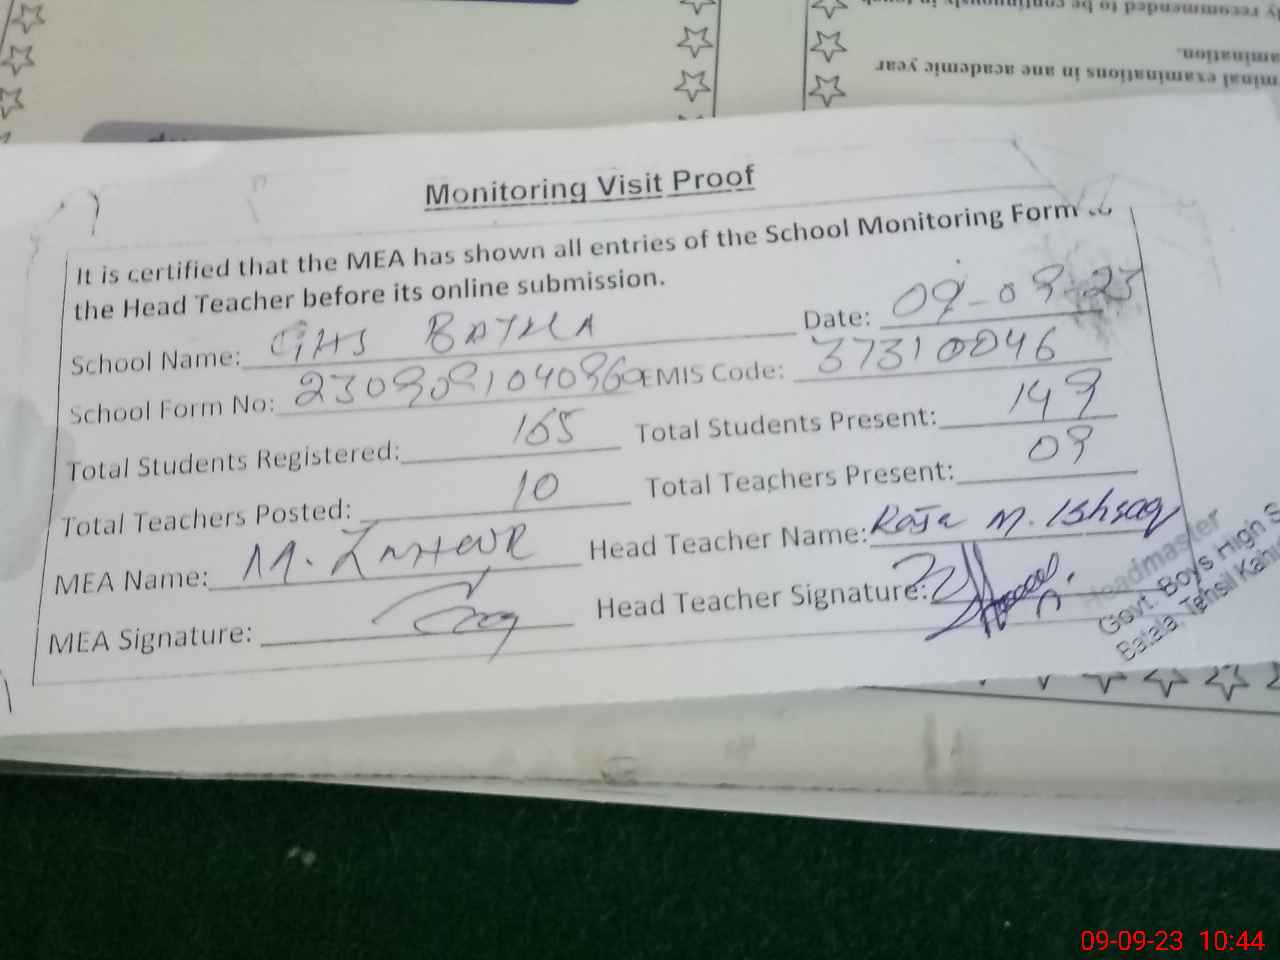 y recommended to be continuously in
amination.
minal examinations in ane academic year
Monitoring Visit Proof
It is certified that the MEA has shown all entries of the School Monitoring Form to
the Head Teacher before its online submission.
School Name: GHS BATALA Date: 09-09-23
School Form No: EMIS Code: 37310046
Total Students Registered: 165 Total Students Present: 149
Total Teachers Posted: 10 Total Teachers Present: 09
MEA Name: M. ZAHOOR Head Teacher Name: Raja M. Ishaaq
MEA Signature: Head Teacher Signature:
Headmaster
Govt. Boys High S
Batala, Tehsil Kahu
09-09-23 10:44